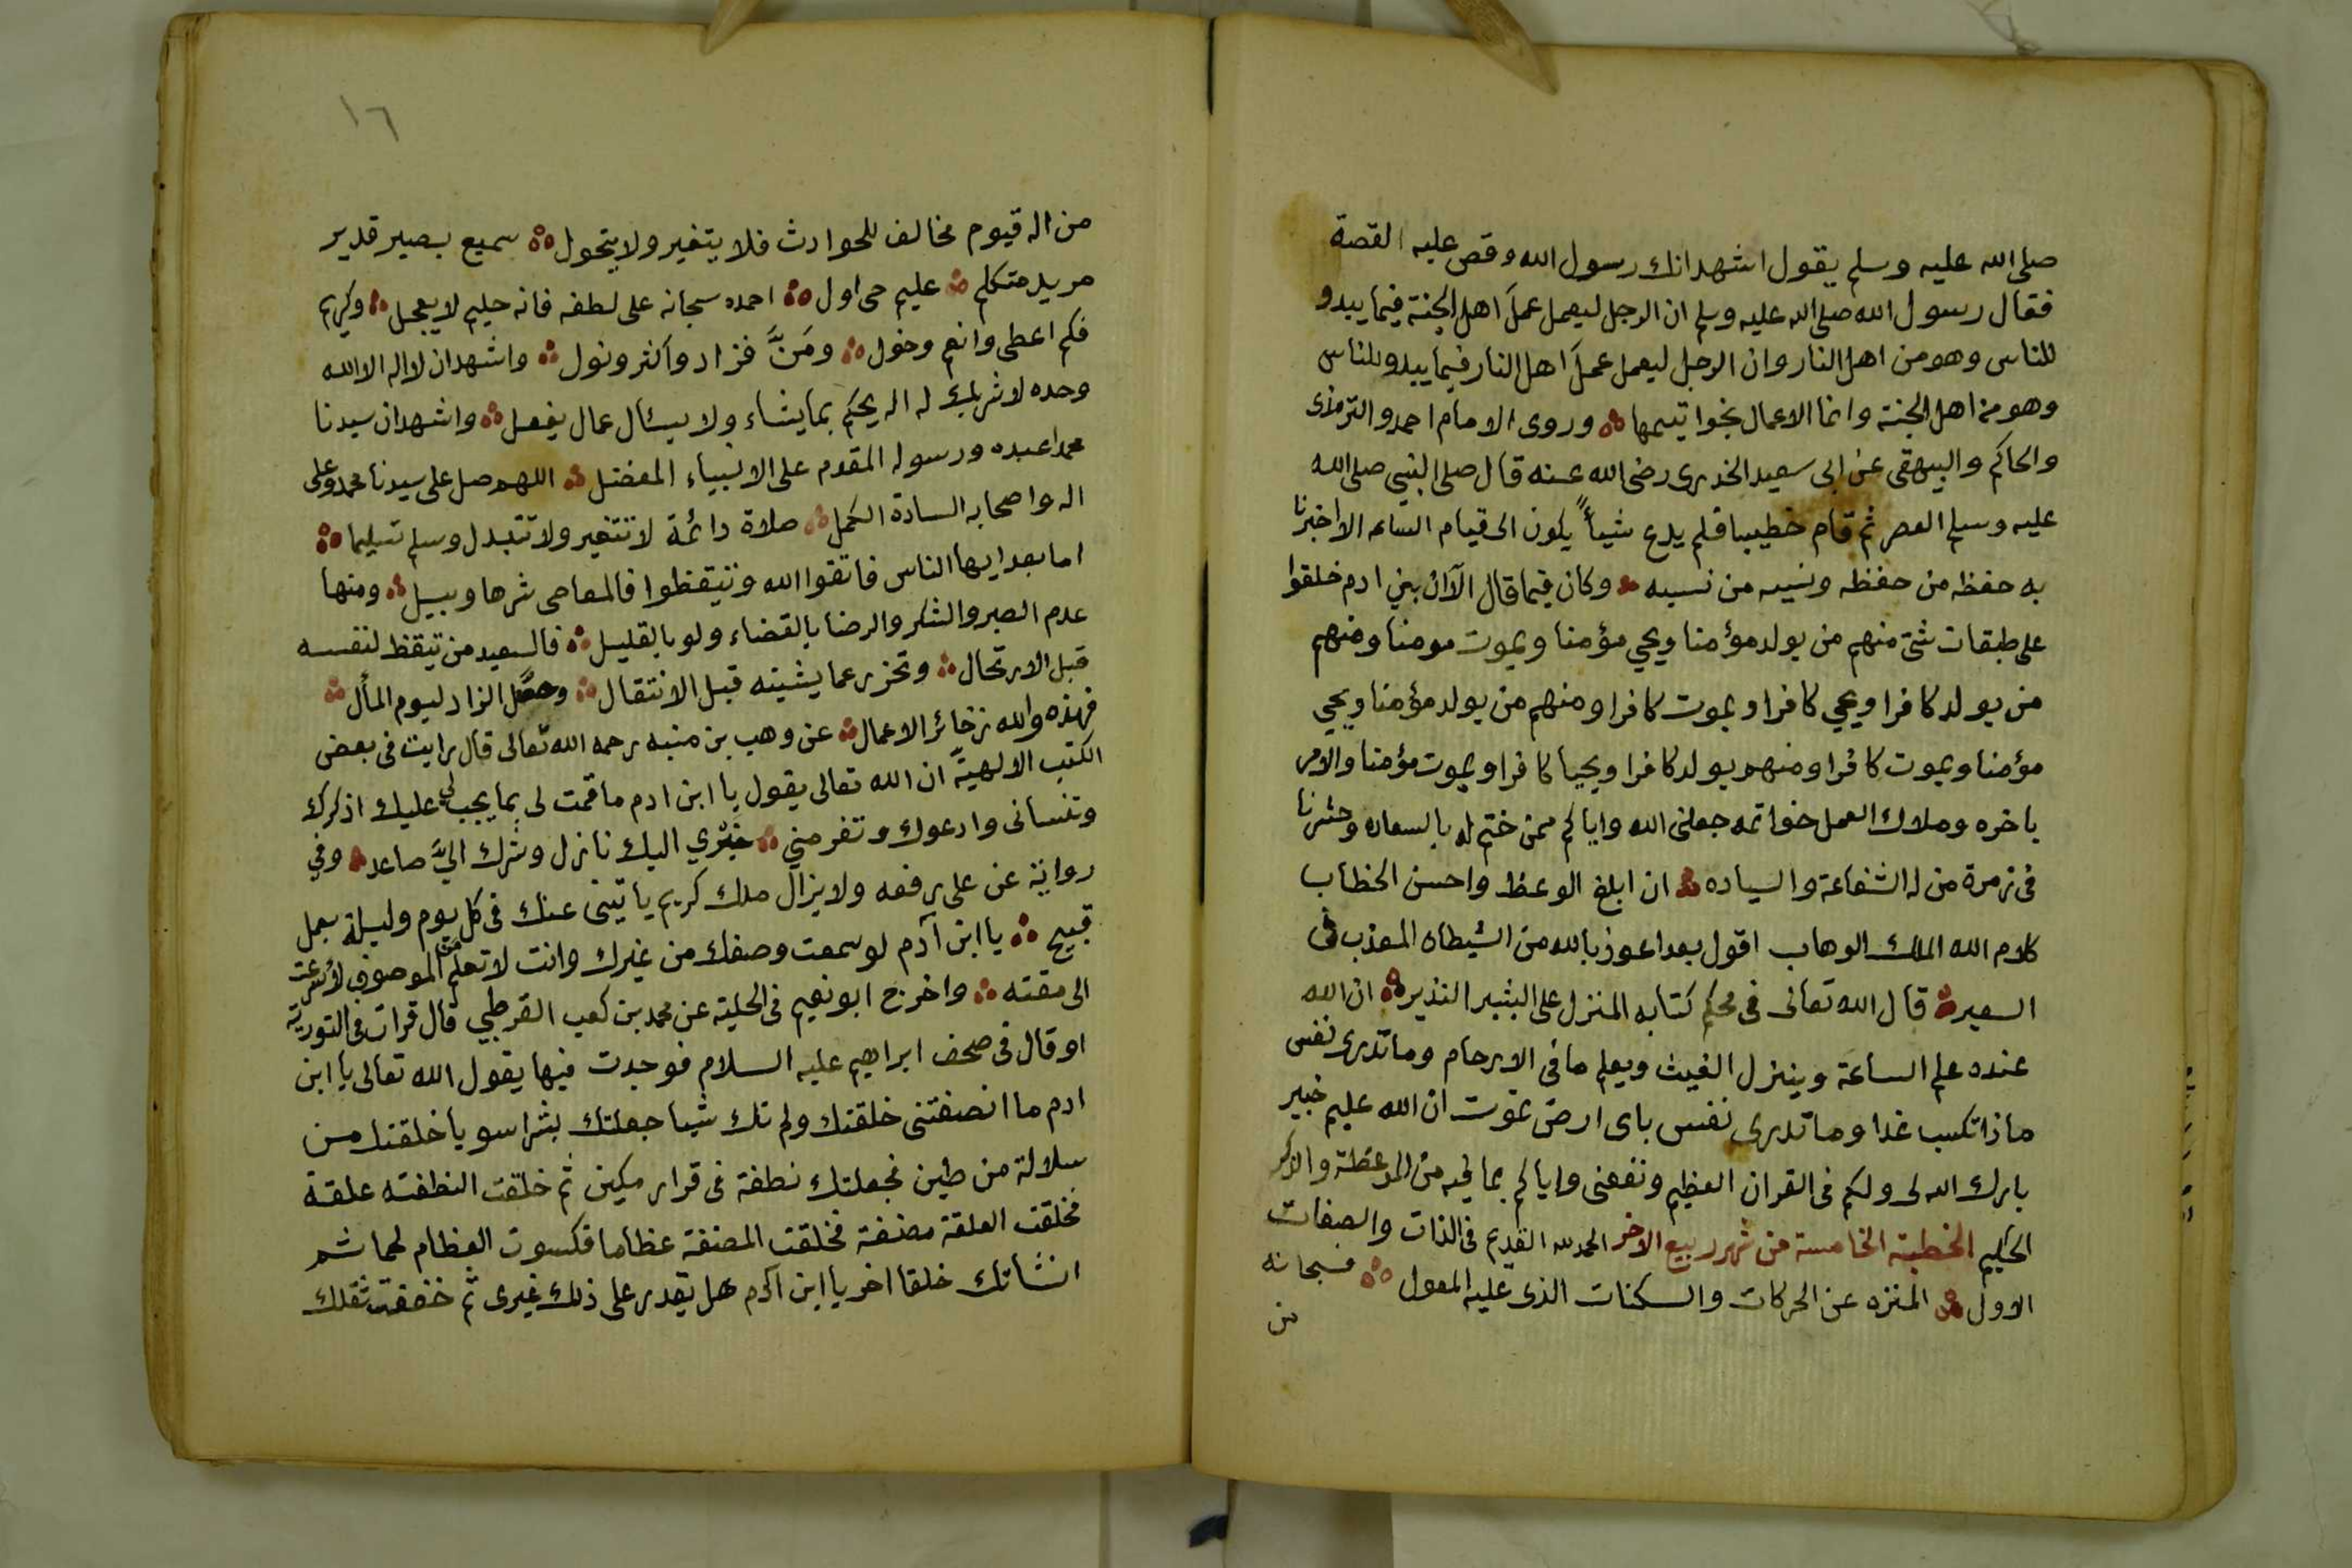 صلى الله عليه وسلم يقول اشهد انك رسول الله وقص عليه القصة
فقال رسول الله صلى الله عليه وسلم ان الرجل ليعمل عملَ اهل الجنة فيما يبدو
للناس وهو من اهل النار وان الرجل ليعمل عملَ اهل النار فيما يبدو للناس
وهو من اهل الجنة وانما الاعمال بخواتيمها وروى الامام احمد والترمذى
والحاكم والبيهقى عن ابى سعيد الخدرى رضى الله عنه قال صلى النبي صلى الله
عليه وسلم العصر ثم قام خطيبا فلم يدع شيأً يكون الى قيام الساعه الا اخبرنا
به حفظه من حفظه ونسيه من نسيه وكان فيما قال الآان بني ادم خلقوا
على طبقات شتى منهم من يولد مؤمنا ويحي مؤمنا ويموت مومنا ومنهم
من يولد كافرا ويحي كافرا ويموت كافرا ومنهم من يولد مؤمنا ويحي
مؤمنا ويموت كافرا ومنهم يولد كافرا ويحيا كافرا ويموت مؤمنا والامر
باخره وملاك العمل خواتمه جعلنى الله واياكم ممن ختم له بالسعاده وحشرنا
فى زمرة من له الشفاعة والسياده ان ابلغ الوعظ واحسن الخطاب
كلام الله الملك الوهاب اقول بعد اعوذ بالله من الشيطان المعذب فى
السعير قال الله تعالى فى محكم كتابه المنزل على البشير النذير ان الله
عنده علم الساعة وينزل الغيث ويعلم ما فى الارحام وما تدرى نفس
ماذا تكسب غدا وما تدرى نفس باى ارض تموت ان الله عليم خبير
بارك الله لى ولكم فى القران العظيم ونفعنى واياكم بما فيه من الموعظة والذكر
الحكيم الخطبة الخامسة من شهر ربيع الاخر الحمد لله القديم فى الذات والصفات
الاول المنزه عن الحركات والسكنات الذى عليه المعول فسبحانه
من
١٦
من اله قيوم مخالف للحوادث فلا يتغير ولا يتحول سميع بصير قدير
مريد متكلم عليم حى اول احمده سبحانه على لطفه فانه حليم لا يعجل وكريم
فكم اعطى وانعم وخول ومَنَّ فزاد واكثر ونول واشهد ان لا اله الا الله
وحده لا شريك له اله يحكم بما يشاء ولا يسئال عمال يفعل واشهد ان سيدنا
محمدا عبده ورسوله المقدم على الانبياء المفضل اللهم صل على سيدنا محمد وعلى
اله واصحابه السادة الكمل صلاة دائمة لا تتغير ولا تتبدل وسلم تسليما
اما بعد ايها الناس فاتقوا الله وتيقظوا فالمعاصى شرها وبيل ومنها
عدم الصبر والشكر والرضا بالقضاء ولو بالقليل فالسعيد من تيقظ لنفسه
قبل الارتحال وتحزر عما يشينه قبل الانتقال وحصّل الزاد ليوم المأل
فهذه والله زخائر الاعمال عن وهب بن منبه رحمه الله تعالى قال رايت فى بعض
الكتب الالهية ان الله تعالى يقول يا ابن ادم ما قمت لى بما يجب لى عليك اذكرك
وتنسانى وادعوك وتفر مني خيْرى اليك نازل وشرك اليَّ صاعد وفي
رواية عن على رفعه ولا يزال ملك كريم ياتينى عنك فى كل يوم وليلة بعمل
قبيح يا ابن آدم لو سمعت وصفك من غيرك وانت لا تعلم من الموصوف لأسرعت
الى مقته واخرج ابو نعيم فى الحلية عن محمد بن كعب القرظي قال قرات فى التورية
او قال فى صحف ابراهيم عليه السلام فوجدت فيها يقول الله تعالى يا ابن
ادم ما انصفتنى خلقتك ولم تك شيا جعلتك بشرا سويا خلقتك من
سلالة من طين فجعلتك نطفة فى قرار مكين ثم خلقت النطفته علقة
فخلقت العلقة مضغة فخلقت المضغة عظاما فكسوت العظام لحما ثم
انشاتك خلقا اخر يا ابن آدم هل يقدر على ذلك غيرى ثم خففت ثقلك